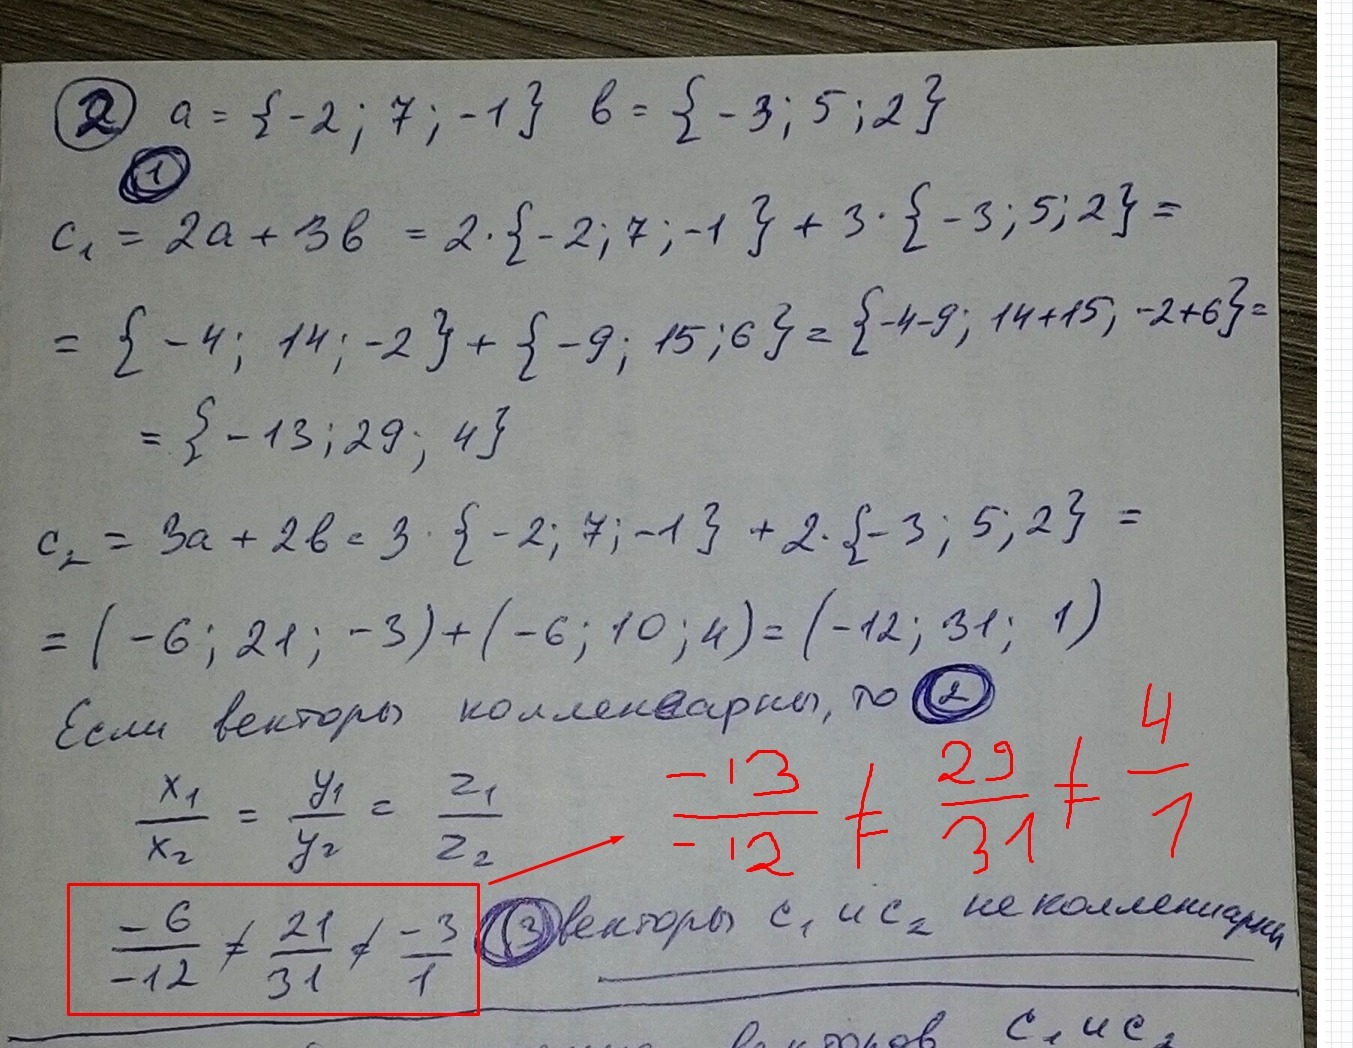 2 a = {-2; 7; -1} b = {-3; 5; 2}
1
c₁ = 2a + 3b = 2·{-2; 7; -1} + 3·{-3; 5; 2} =
= {-4; 14; -2} + {-9; 15; 6} = {-4-9; 14+15; -2+6} =
= {-13; 29; 4}
c₂ = 3a + 2b = 3·{-2; 7; -1} + 2·{-3; 5; 2} =
= (-6; 21; -3) + (-6; 10; 4) = (-12; 31; 1)
Если векторы коллениарны, то 2
x₁/x₂ = y₁/y₂ = z₁/z₂
-13/-12 ≠ 29/31 ≠ 4/1
-6/-12 ≠ 21/31 ≠ -3/1 3 векторы c₁ и c₂ не коллениарны
векторов c₁ и c₂